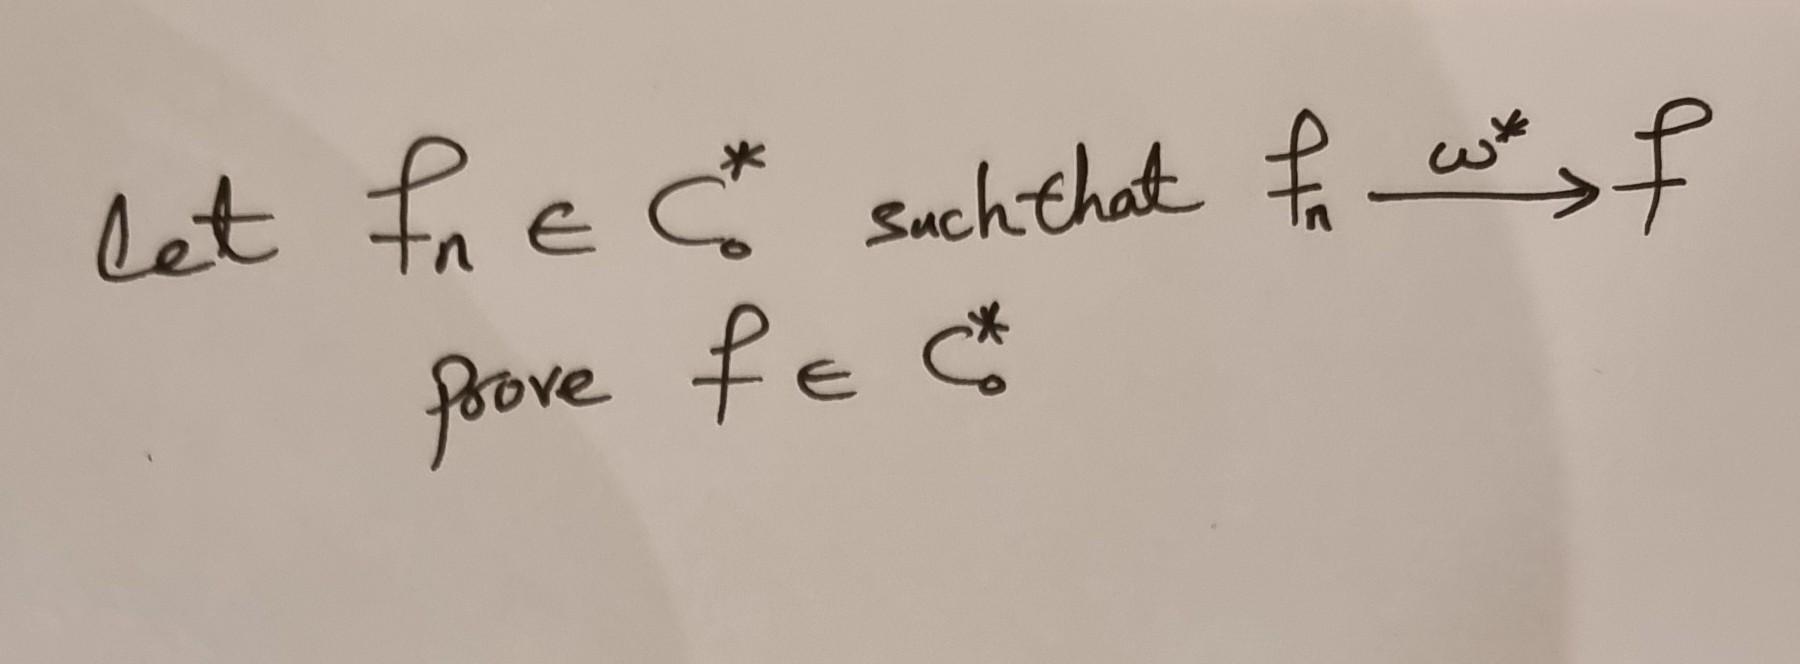 Let fn ∈ C₀* such that fn —w*→ f
prove f ∈ C₀*